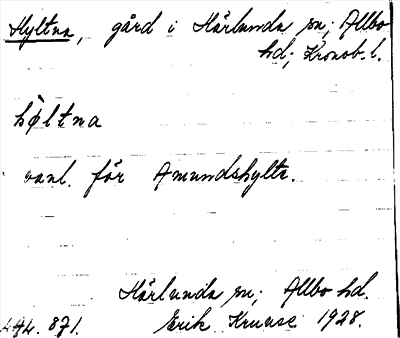 Hyltna, gård i Härlunda sn; Allbo
hd; Kronob. l.
hỳltna
vanl. för Amundshylte.
Härlunda sn; Allbo hd.
Erik Kruuse 1928.
494. 871.